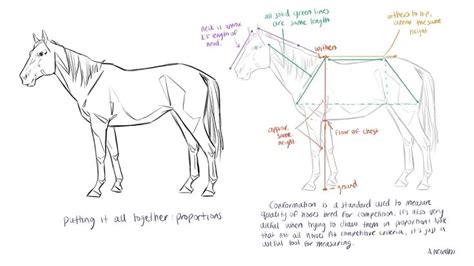 Putting it all together: proportions
neck is approx
1.5 length of
head.
all solid green lines
are same length
withers to hip,
approx the same
height
withers
approx.
same
height
floor of chest
ground
Conformation is a standard used to measure
quality of horses bred for competition. it's also very
useful when trying to draw them in proportion! Note
that not all horses fit competitive criteria, it's just a
useful tool for measuring.